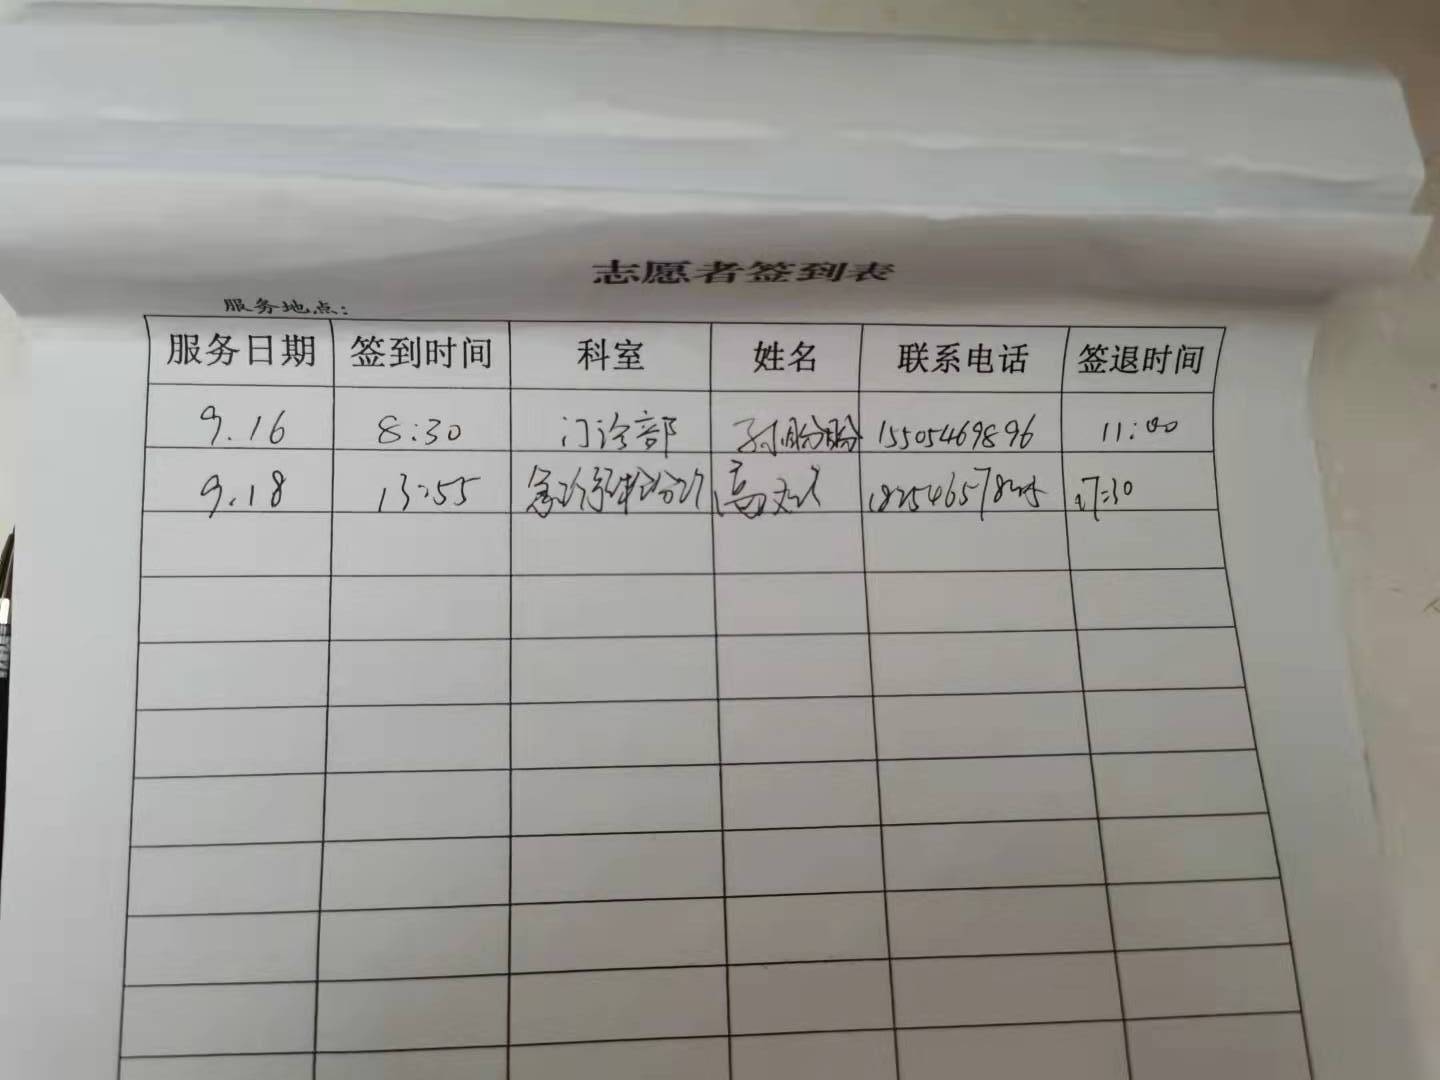 志愿者签到表
服务地点：
服务日期 签到时间 科室 姓名 联系电话 签退时间
9.16 8:30 门诊部 孙盼盼 15505469896 11:00
9.18 13:55 急诊预检分诊 高 17:30